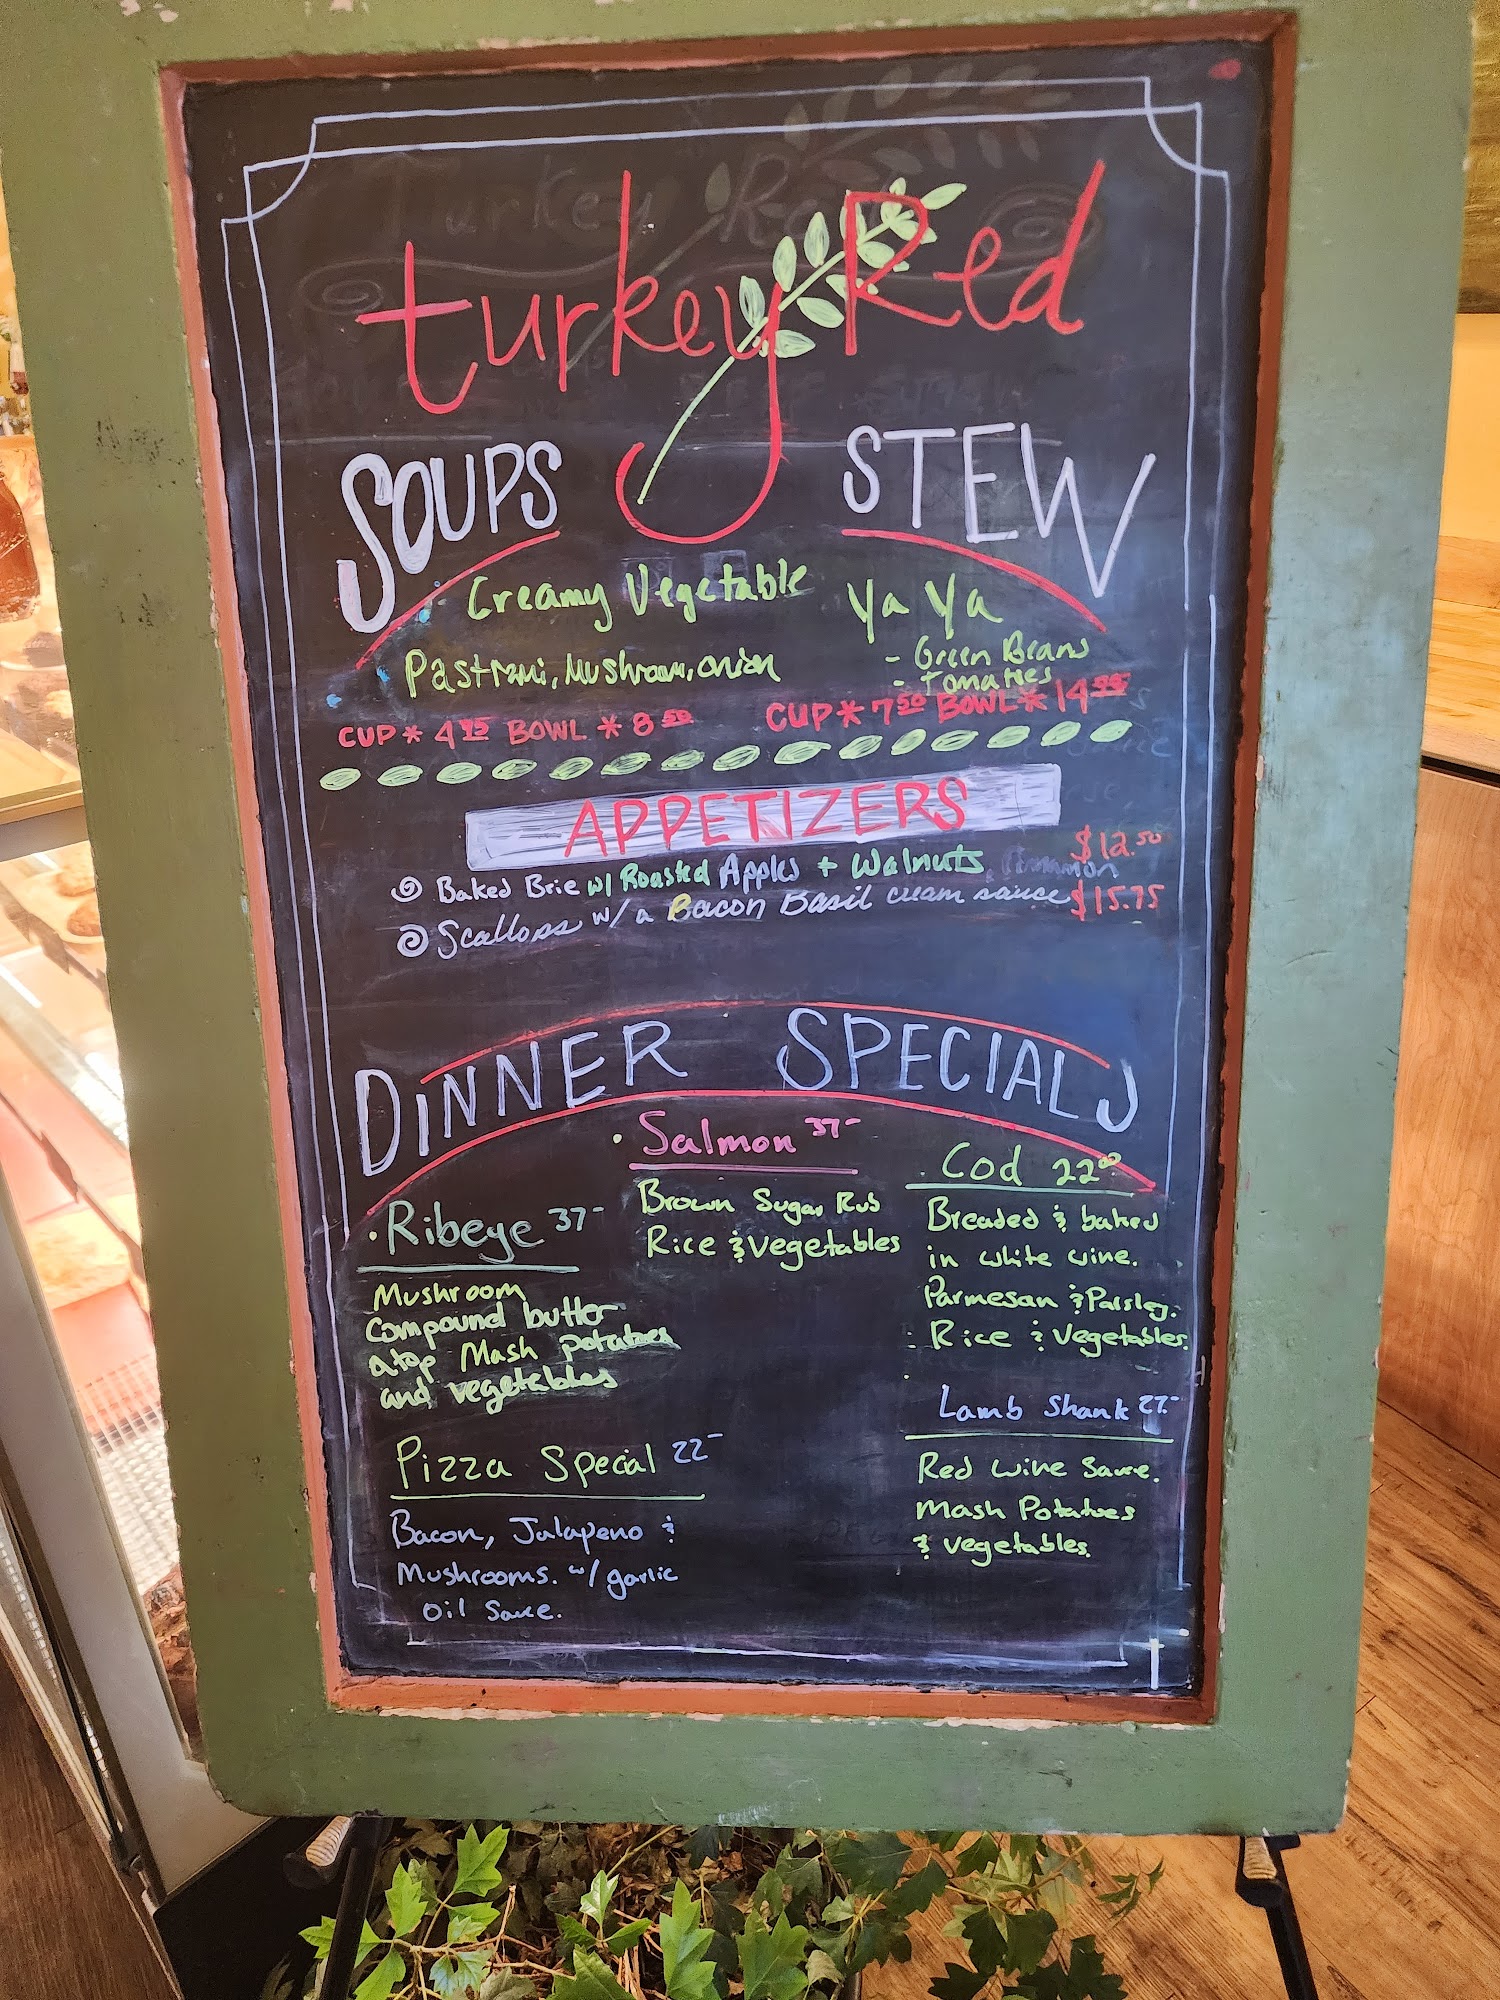 turkey Red
SOUPS
STEW
Creamy Vegetable
Pastrami, Mushroom, onion
CUP * 4.95 BOWL * 8.50
Ya Ya
- Green Beans
- Tomatoes
CUP * 7.50 BOWL * 14
APPETIZERS
Baked Brie w/ Roasted Apples + Walnuts, Cinnamon $12.50
Scallops w/ a Bacon Basil cream sauce $15.75
DINNER SPECIALS
· Ribeye 37-
Mushroom
compound butter
atop Mash potatoes
and vegetables
· Salmon 37-
Brown Sugar Rub
Rice & Vegetables
· Cod 22.00
Breaded & baked
in white wine.
Parmesan & Parsley.
Rice & Vegetables.
Pizza Special 22-
Bacon, Jalapeno &
Mushrooms. w/ garlic
Oil Sauce.
Lamb Shank 27.-
Red Wine Sauce.
Mash Potatoes
& vegetables.